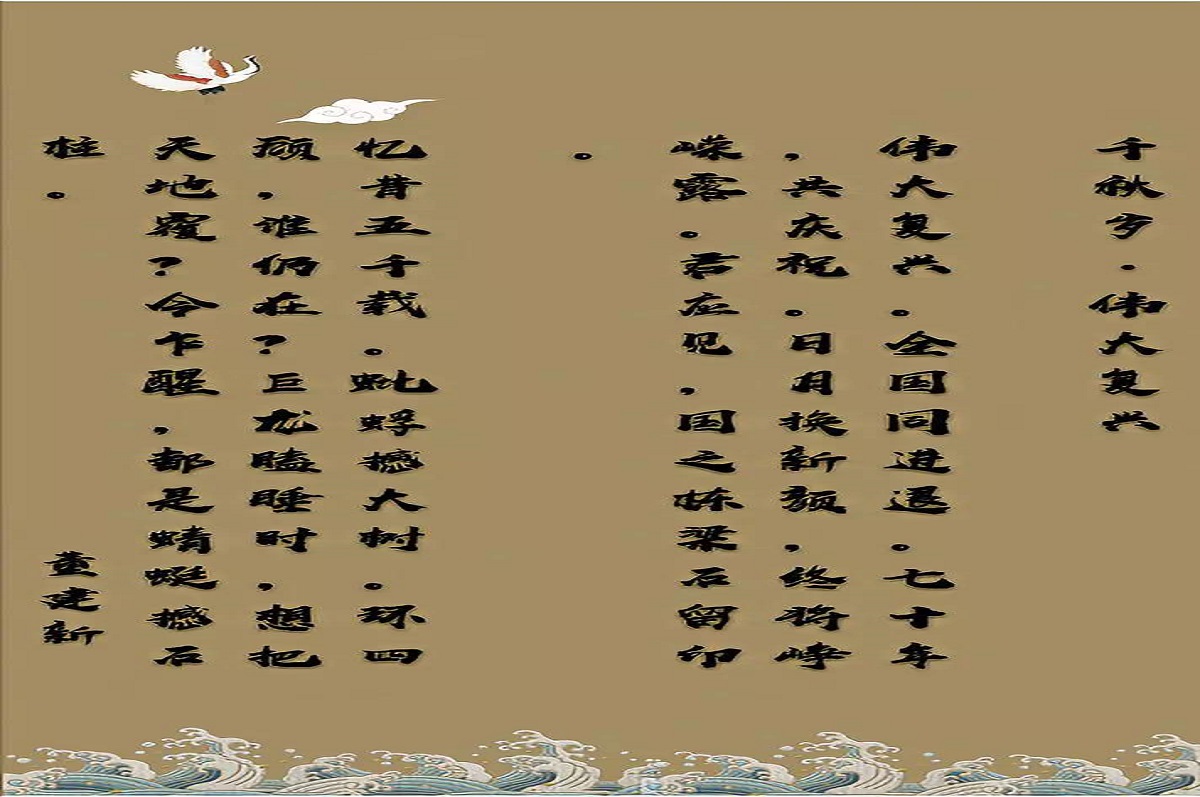 千秋岁·伟大复兴
伟大复兴。全国同进退。七十年
，共庆祝。日月换新颜，终将峥
嵘露。君应见，国之栋梁石留印
。
忆昔五千载。蚍蜉撼大树。环四
顾，谁仍在？巨龙瞌睡时，想把
天地覆？今乍醒，都是蜻蜓撼石
柱。
董建新